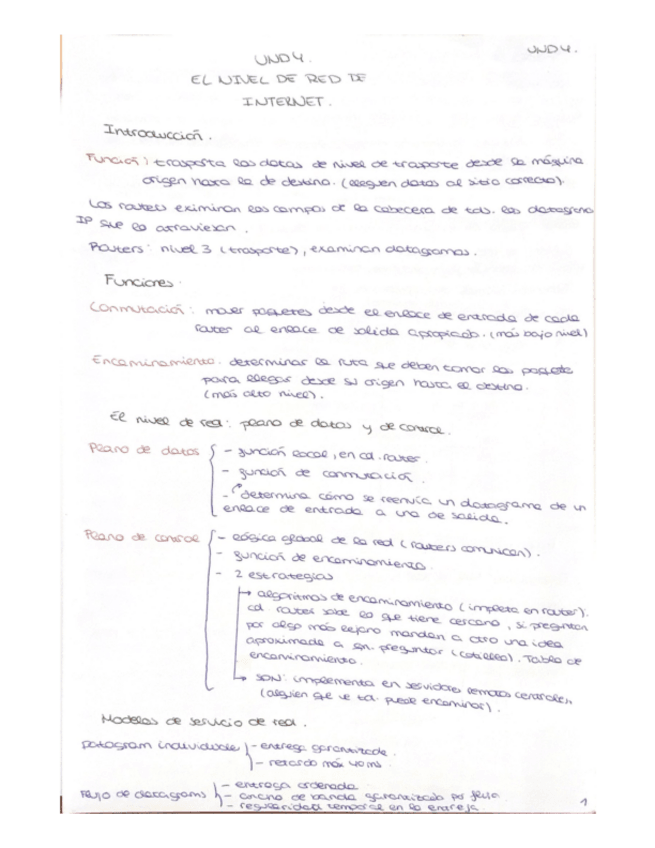 UND 4.
UND 4.
EL NIVEL DE RED DE
INTERNET.
Introducción.
Función: trasporta los datos de nivel de trasporte desde la máquina
origen hasta la de destino. (lleguen datos al sitio correcto).
Los routers examinan los campos de la cabecera de tds. los datagrama
IP que lo atraviesan.
Routers: nivel 3 (trasporte), examinan datagramas.
Funciones.
Conmutación: mover paquetes desde el enlace de entrada de cada
router al enlace de salida apropiado. (más bajo nivel)
Encaminamiento: determinar la ruta que deben tomar los paquete
para llegar desde su origen hasta el destino.
(más alto nivel).
El nivel de red: plano de datos y de control.
Plano de datos
- función local, en cd. router.
- función de conmutación.
- determina cómo se reenvía un datagrama de un
enlace de entrada a uno de salida.
Plano de control
- lógica global de la red (routers comunican).
- función de encaminamiento.
- 2 estrategias
→ algoritmos de encaminamiento (implenta en router).
cd. router sabe lo que tiene cercano, si preguntan
por algo más lejano mandan a otro una idea
aproximada a qn. preguntar (cotilleo). Tabla de
encaminamiento.
→ SDN: implementa en servidores remotos centralen
(alguien que ve td. puede encaminar).
Modelos de servicio de red.
Datagram individuale
- entrega garantizada.
- retardo máx 40 ms.
Flujo de datagrams
- entrega ordenada
- ancho de banda garantizado por flujo
- regularidad temporal en la entrega.
1